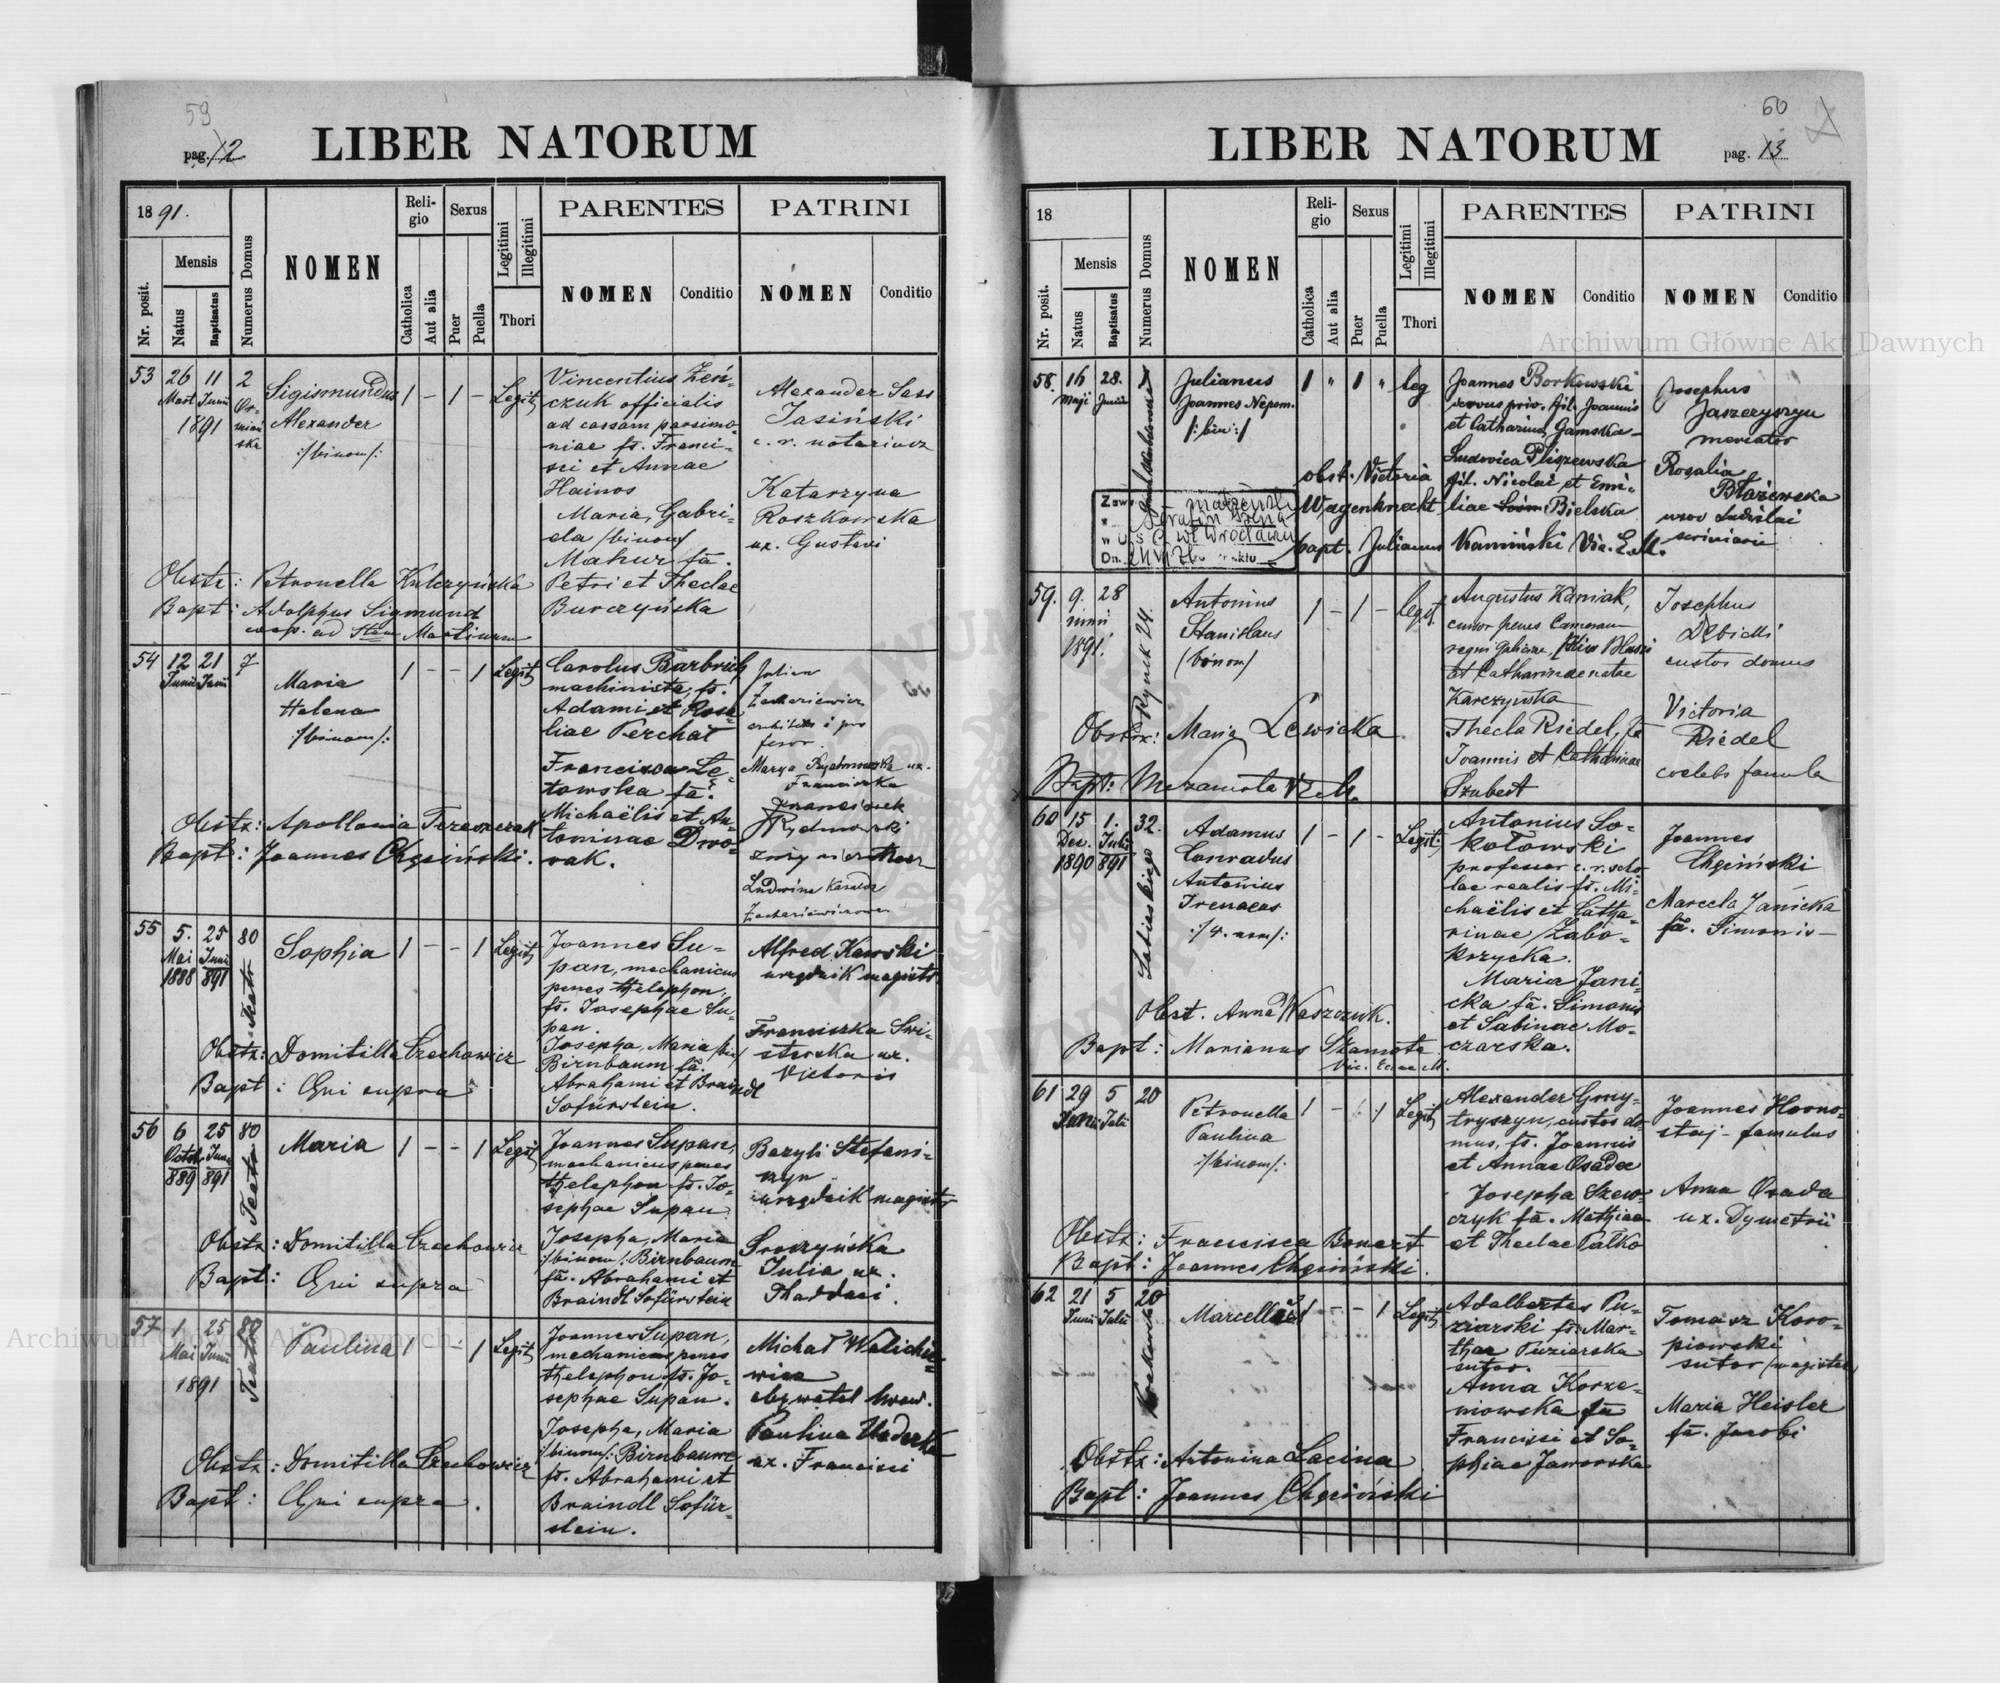 59
pag. 12
LIBER NATORUM
1891.
Mensis
Nr. posit.
Natus
Baptisatus
Numerus Domus
NOMEN
Religio
Catholica
Aut alia
Sexus
Puer
Puella
Legitimi
Illegitimi
Thori
PARENTES
NOMEN
Conditio
PATRINI
NOMEN
Conditio
53
26 Mart
11 Junii
1891
2
Or-
miań
ska
Sigismundus
Alexander
:/binom/:
1 - 1 - Legit
Vincentius Zeń-
czuk officialis
ad cassam parsimo-
niae fs. Franci-
sci et Annae
Hainos
Maria, Gabri-
ela /binom/
Mahur fa.
Petri et Theclae
Burczyńska
Alexander Sass
Jasiński
c. r. notariusz
Katarzyna
Roszkowska
ux. Gustavi
Obstr: Petronella Kulczyńska
Bapt: Adolphus Sigmund
coop. ad Stum Martinum
54
12 Junii
21 Junii
7
Maria
Helena
:/binom/:
1 - - 1 Legit
Carolus Barbrich
machinista, fs.
Adami et Rosa-
liae Perchat
Francisca Le-
towska fa.
Michaëlis et An-
toninae Dwo-
rak.
Julian
Zachariewicz
architekt i pro
fesor.
Marya Rydnowska ux.
Franciszka
Franciszek
Rydnowski
Ludwina
Zachariewiczowa
Obstr: Apollonia
Bapt: Joannes Chęciński.
55
5. Mai 1888
25 Junii 891
80
Teatr
Sophia
1 - - 1 Legit
Joannes Su-
pan, mechanicus
penes thelephon,
fs. Josephae Su-
pan.
Josepha, Maria /bin/
Birnbaum fa.
Abrahami et Braindl
Sofürstein.
Alfred Kawski
urzędnik magistr.
Franciszka Swi-
sterska ux.
Victoris
Obstr: Domitilla Czechowicz
Bapt: Qui supra
56
6 Octob 889
25 Junii 891
80
Teatr
Maria
1 - - 1 Legit
Joannes Supan,
mechanicus penes
thelephon fs. Jo-
sephae Supan.
Josepha, Maria
:/binom/: Birnbaum
fa. Abrahami et
Braindl Sofürstein
Bazyli Stefani-
szyn
urzędnik magistr
Sroczyńska
Julia ux.
Thaddaei.
Obstr: Domitilla Czechowicz
Bapt: Qui supra
57
1 Mai
25 Junii
1891
80
Teatr
Paulina
1 - - 1 Legit
Joannes Supan,
mechanicus penes
thelephon fs. Jo-
sephae Supan.
Josepha, Maria
:/binom/: Birnbaum
fs. Abrahami et
Braindl Sofür-
stein.
Michał Walichie-
wicz
obywatel lwow.
Paulina Uderka
ux. Francisci
Obstr: Domitilla Czechowicz
Bapt: Qui supra.
60
pag. 13
LIBER NATORUM
18
Mensis
Nr. posit.
Natus
Baptisatus
Numerus Domus
NOMEN
Religio
Catholica
Aut alia
Sexus
Puer
Puella
Legitimi
Illegitimi
Thori
PARENTES
NOMEN
Conditio
PATRINI
NOMEN
Conditio
58.
16 Maji
28. Junii
Julianus
Joannes Nepom.
/:bin:/
1 " 1 " leg
Joannes Borkowski
servus priv. fil. Joannis
et Catharina Gamska
Ludovica Pliszewska
fil. Nicolai et Emi-
liae Bielska
Josephus
Jaszczyszyn
mercator
Rosalia
Błażewska
uxor Ladislai
obst. Victoria
Wagenknecht
bapt. Julianus Kamiński Vic. E.M.
59.
9. Junii
28
1891.
Rynek 24.
Antonius
Stanislaus
/binom/
1 - 1 - legit.
Augustus Kaniak,
cursor penes Cameram
regni Galiciae, filius Blasii
et Catharinae natae
Karczyńska
Thecla Riedel, fa
Joannis et Catharinae
Szubert
Josephus
Dębicki
custos domus
Victoria
Riedel
coelebs famula
Obstr: Maria Lewicka
60
15 Dec. 1890
1. Julii 891
32.
Adamus
Conradus
Antonius
Irenaeus
:/4. nom/:
1 - 1 - Legit.
Antonius So-
kołowski
professor c. r. scho
lae realis fs. Mi-
chaëlis et Catha-
rinae Zabo-
krzycka.
Maria Jani-
cka fa. Simonis
et Sabinae Mo-
czarska.
Joannes
Chęciński
Marcela Janicka
fa. Simonis
Obst. Anna Waszczuk.
Bapt: Marianus Szamota
Vic. Ecclae M.
61
29 Junii
5 Julii
20
Petronella
Paulina
:/binom/:
1 - - 1 Legit
Alexander Gmy-
tryszyn, custos do-
mus, fs. Joannis
et Annae Osadca
Josepha Szew-
czyk fa. Mathiae
et Theclae Palko
Joannes Horno-
staj - famulus
Anna Osada
ux. Dymetrii
Obstr: Francisca Bonert
Bapt: Joannes Chęciński.
62
21 Junii
5 Julii
20
Krakowska
Marcella
1 - - 1 Legit
Adalbertus Pu-
ziarski fs. Mar-
thae Puziarska
sutor.
Anna Korze-
niowska fa
Francisci et So-
phiae Jaworska
Tomasz Koro-
piowski
sutor /magister/
Maria Heisler
fa. Jacobi
Obstr: Antonina Lacina
Bapt: Joannes Chęciński
Archiwum Główne Akt Dawnych
Archiwum Główne Akt Dawnych